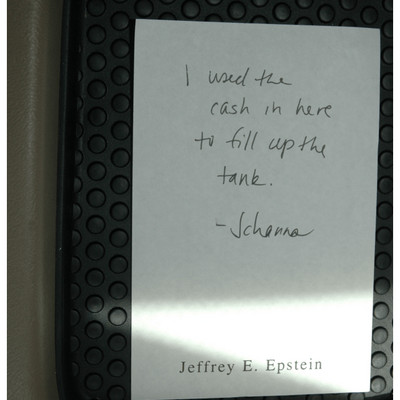 I used the
cash in here
to fill up the
tank.
- Jchanna
Jeffrey E. Epstein